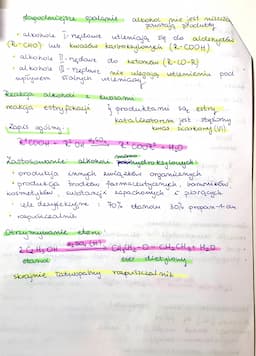 łagodniejsze spalanie alkohol nie jest niszcz
powstają produkty
• alkohole I-rzędowe utleniają się do aldehydów
(R-CHO) lub kwasów karboksylowych (R-COOH)
• alkohole II-rzędowe do ketonów (R-CO-R)
• alkohole III-rzędowe nie ulegają utlenieniu pod
wpływem silnych utleniaczy
Reakcja alkoholi z kwasami
reakcja estryfikacji } produktami są estry
katalizatorem jest stężony
kwas siarkowy (VI)
Zapis ogólny:
R¹COOH + R²OH R¹COOR² + H₂O
Zastosowanie alkoholi monohydroksylowych:
• produkcja innych związków organicznych
• produkcja środków farmaceutycznych, barwników
kosmetyków, substancji zapachowych i piorących
• cele dezynfekcyjne: 70% etanolu 30% propan-1-olu
• rozpuszczalnik
Otrzymywanie eteru:
2 C₂H₅OH CH₃CH₂-O-CH₂CH₃ + H₂O
etanol eter dietylowy
skrajnie łatwopalny rozpuszczalnik